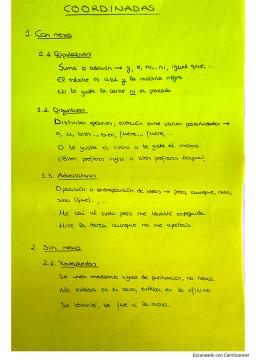 COORDINADAS
1. Con nexo
1.1 Copulativas
Suma o adición → y, e, ni... ni, igual que, ...
El estuche es azul y la mochila negra
No le gusta la carne ni el pescado
1.2. Disyuntivas
Distintas opciones; elección entre varias posibilidades →
o, u, bien... bien, fuera... fuera, ...
O le gusta el rubio o le gusta el moreno
¿Bien prefieres inglés o bien prefieres lengua?
1.3. Adversativas
Oposición o contraposición de ideas → pero, aunque, mas,
sino (que), ...
Me caí al suelo pero me levanté enseguida
Hice la tarea aunque no me apetecía.
2. Sin nexo
2.1. Yuxtapuestas
Se unen mediante signos de puntuación, no nexos
No estaba en su casa, estaba en la oficina
Se levantó, se fue a la mesa.
Escaneado con CamScanner